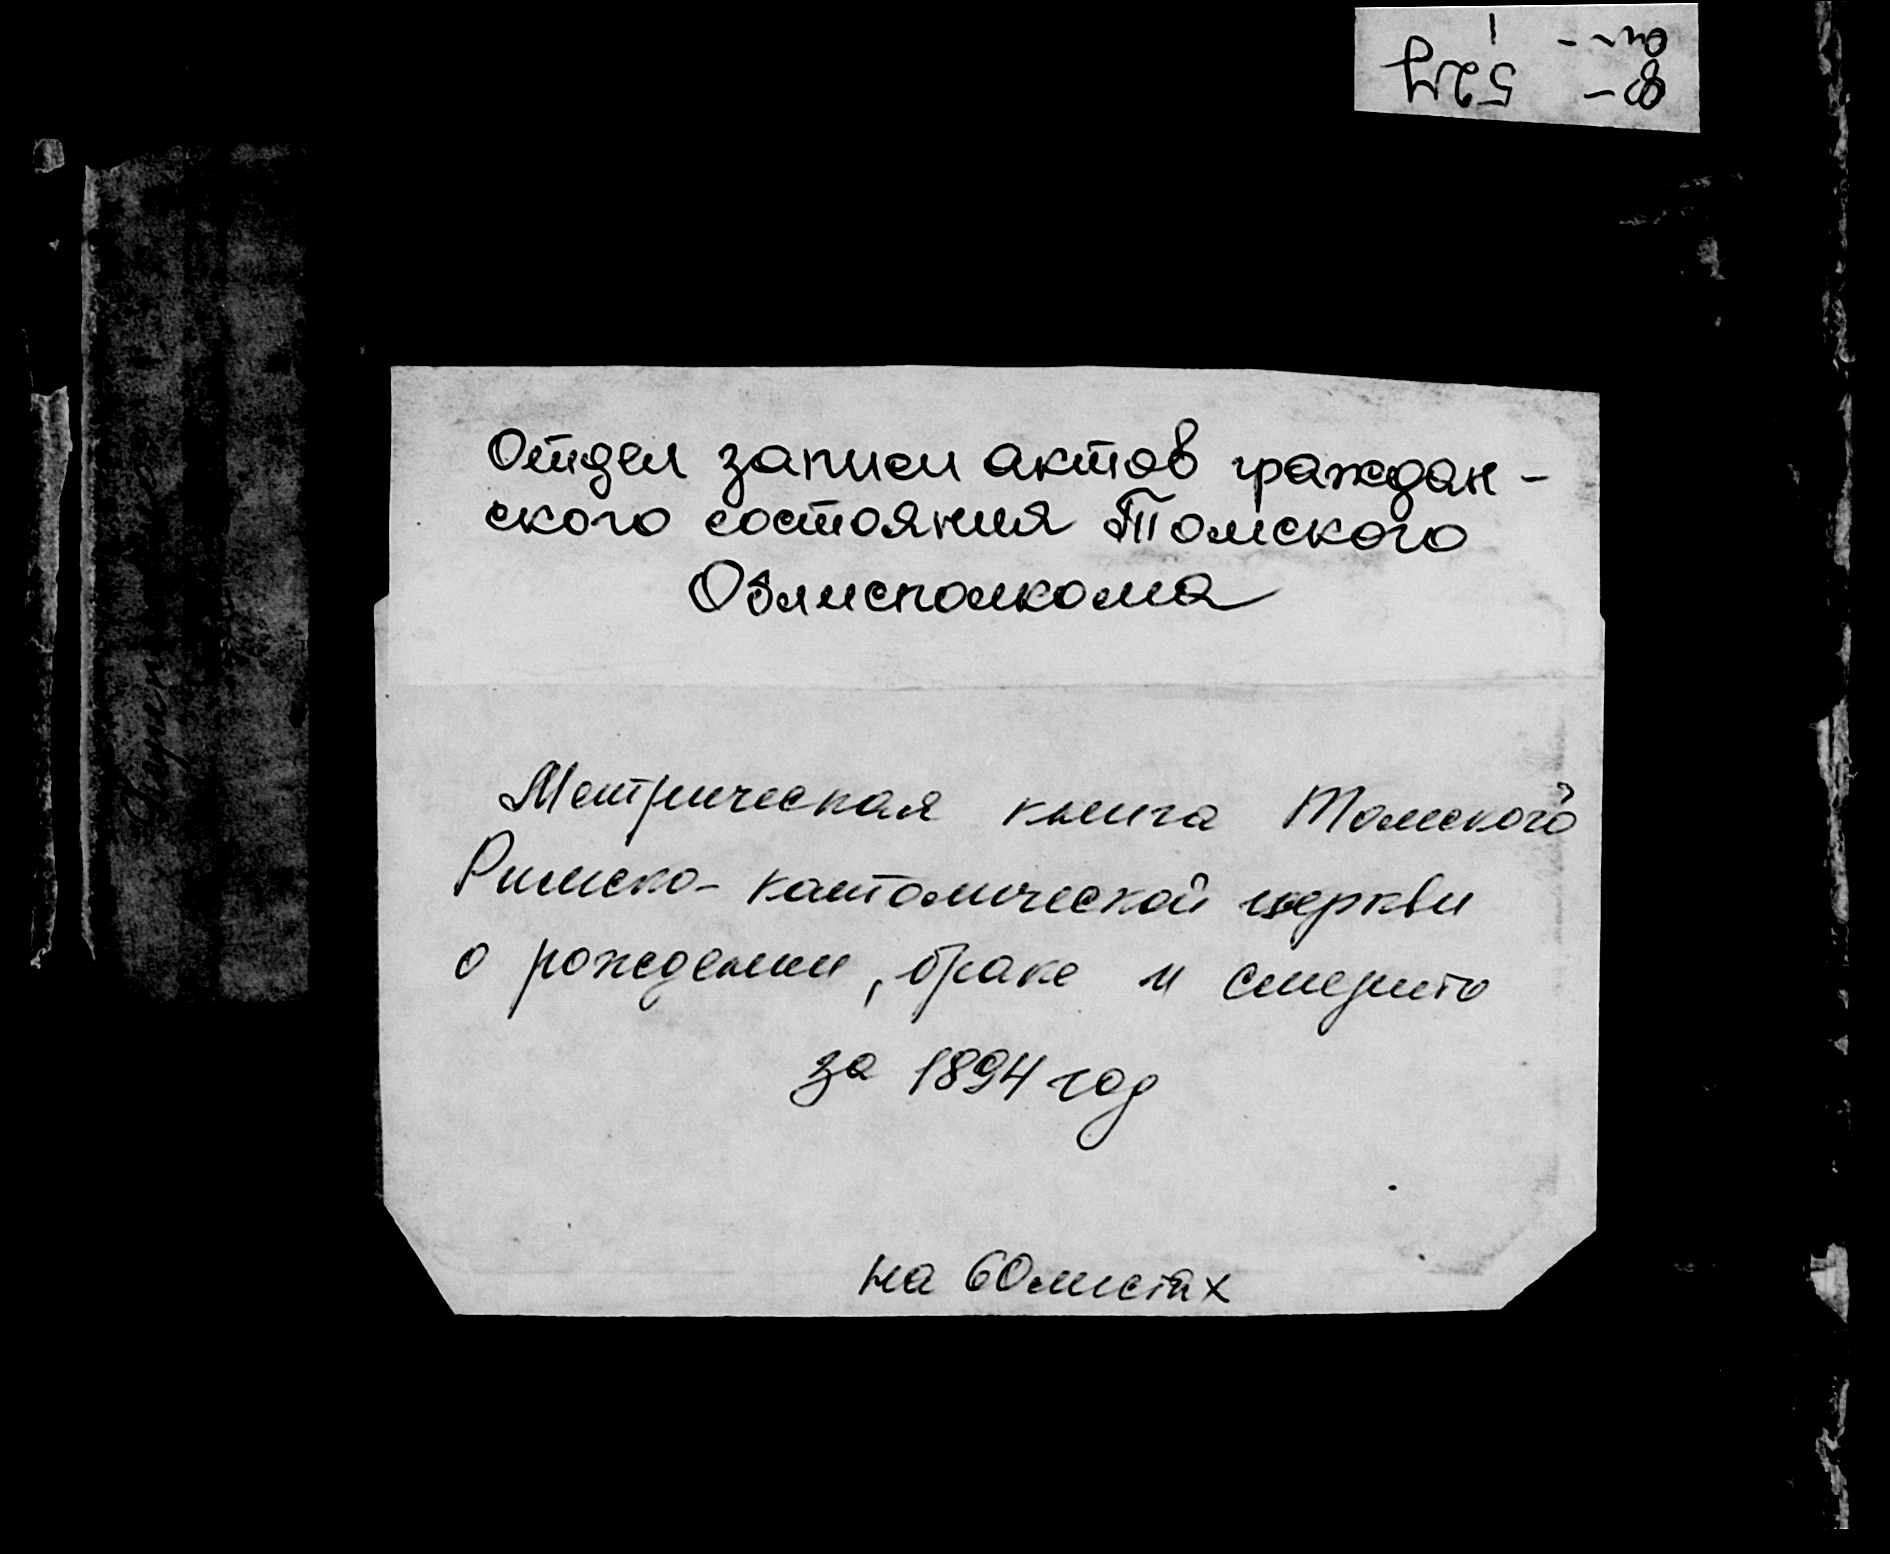 Отдел записи актов граждан-
ского состояния Томского
Облисполкома
Метрическая книга Томского
Римско-католической церкви
о рождении, браке и смерти
за 1894 год
на 60 листах